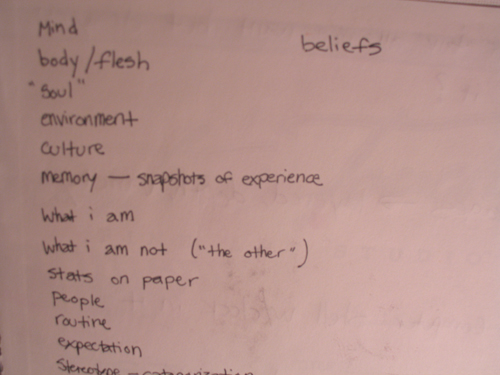 Mind
beliefs
body/flesh
"Soul"
environment
culture
memory — snapshots of experience
what i am
what i am not ("the other")
stats on paper
people
routine
expectation
stereotype — categorization